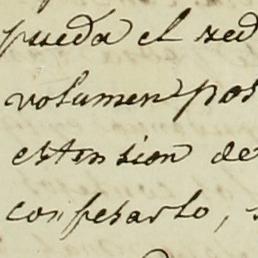 pueda el red
volumen pos
estension de
confesarlo,